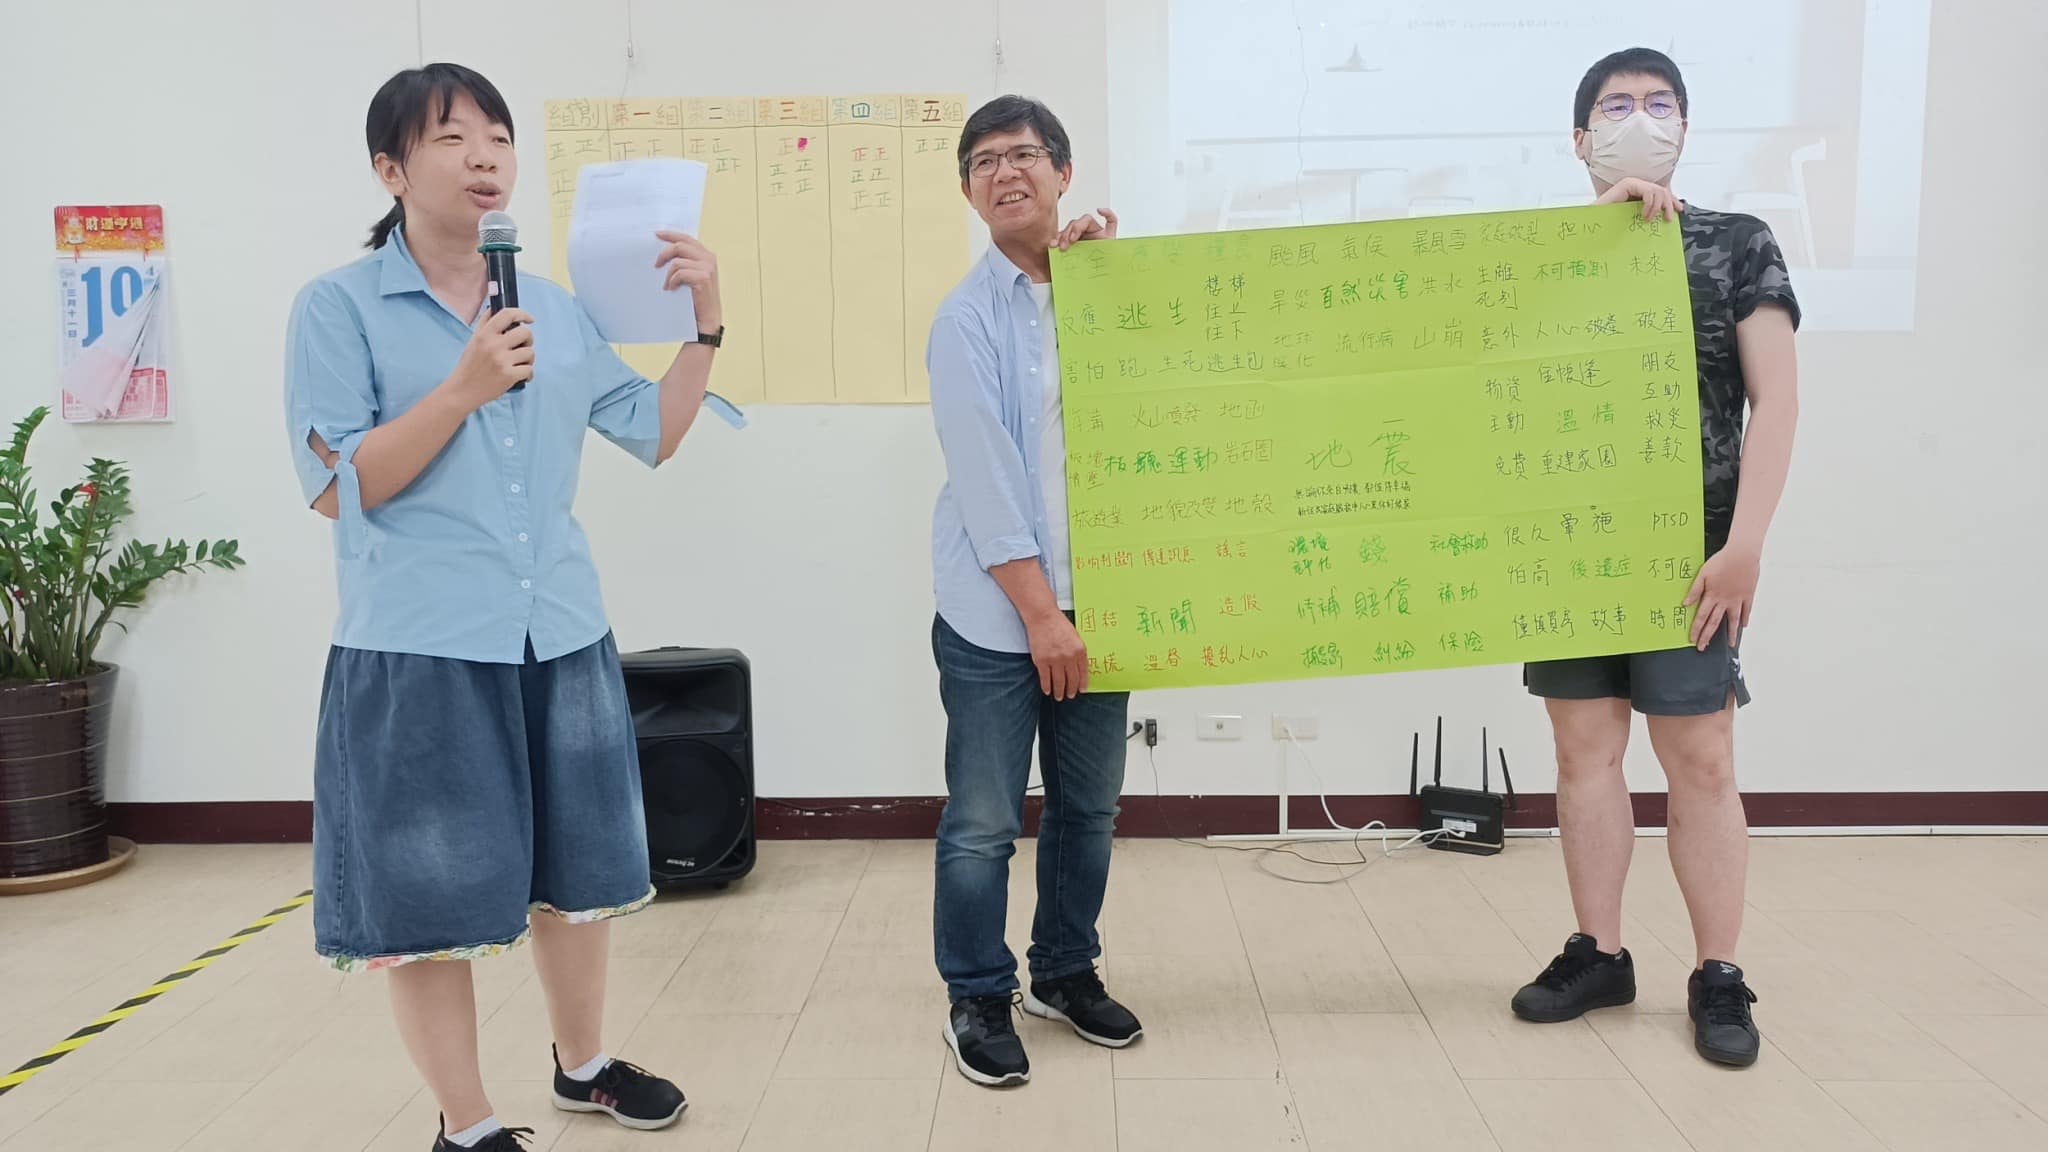 財運亨通
19
三月十一日
組別 第一組 第二組 第三組 第四組 第五組
正 正 正 正 正 正 正 正 正 正 正
正 正 下 正 正 正 正
正 正 正 正 正
安全 糧食 颱風 氣候 暴風雪 家庭破裂 担心 投資
反應 逃生 楼梯 往上 往下 旱災 自然災害 洪水 生離死別 不可預測 未來
害怕 跑 生死 逃生包 地球暖化 流行病 山崩 意外 人心 破產 破產
海溝 火山噴發 地函 地震 物資 住帳篷 朋友互助
板塊運動 岩石圈 主動 溫情 救災
旅遊業 地貌改變 地殼 免費 重建家園 善款
影响判斷 傳達訊息 謠言 環境 錢 社會救助 很久 暈 PTSD
团结 新聞 造假 修補 賠償 補助 怕高 後遺症 不可医
恐慌 擾乱人心 搬家 糾紛 保險 故事 時間